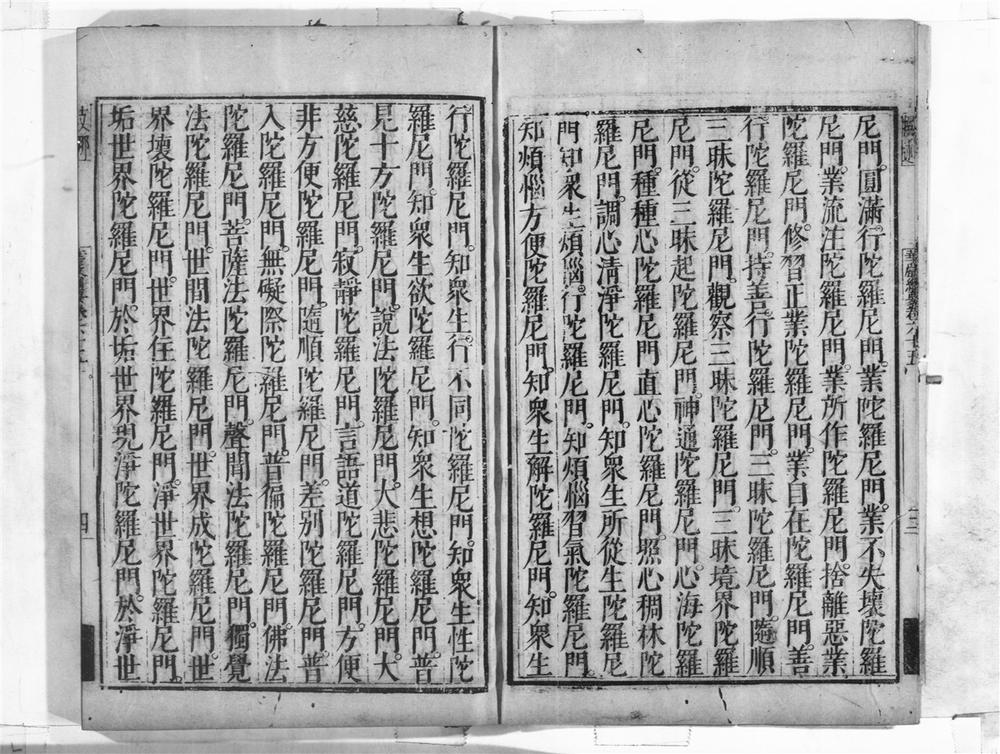 尼門。圓滿。行陀羅尼門。業陀羅尼門。業不失壞陀羅
尼門。業流注陀羅尼門。業所作陀羅尼門。捨離惡業
陀羅尼門。修習正業陀羅尼門。業自在陀羅尼門。善
行陀羅尼門。持善行陀羅尼門。三昧陀羅尼門。隨順
三昧陀羅尼門。觀察三昧陀羅尼門。三昧境界陀羅
尼門。從三昧起陀羅尼門。神通陀羅尼門。心海陀羅
尼門。種種心陀羅尼門。直心陀羅尼門。照心稠林陀
羅尼門。調心清淨陀羅尼門。知衆生所從生陀羅尼
門。知衆生煩惱。行陀羅尼門。知煩惱習氣陀羅尼門。
知煩惱方便陀羅尼門。知衆生解陀羅尼門。知衆生
行陀羅尼門。知衆生行不同陀羅尼門。知衆生性陀
羅尼門。知衆生欲陀羅尼門。知衆生想陀羅尼門。普
見十方陀羅尼門。說法陀羅尼門。大悲陀羅尼門。大
慈陀羅尼門。寂靜陀羅尼門。言語道陀羅尼門。方便
非方便陀羅尼門。隨順陀羅尼門。差別陀羅尼門。普
入陀羅尼門。無礙際陀羅尼門。普徧陀羅尼門。佛法
陀羅尼門。菩薩法陀羅尼門。聲聞法陀羅尼門。獨覺
法陀羅尼門。世間法陀羅尼門。世界成陀羅尼門。世
界壞陀羅尼門。世界住陀羅尼門。淨世界陀羅尼門。
垢世界陀羅尼門。於垢世界現淨陀羅尼門。於淨世
四